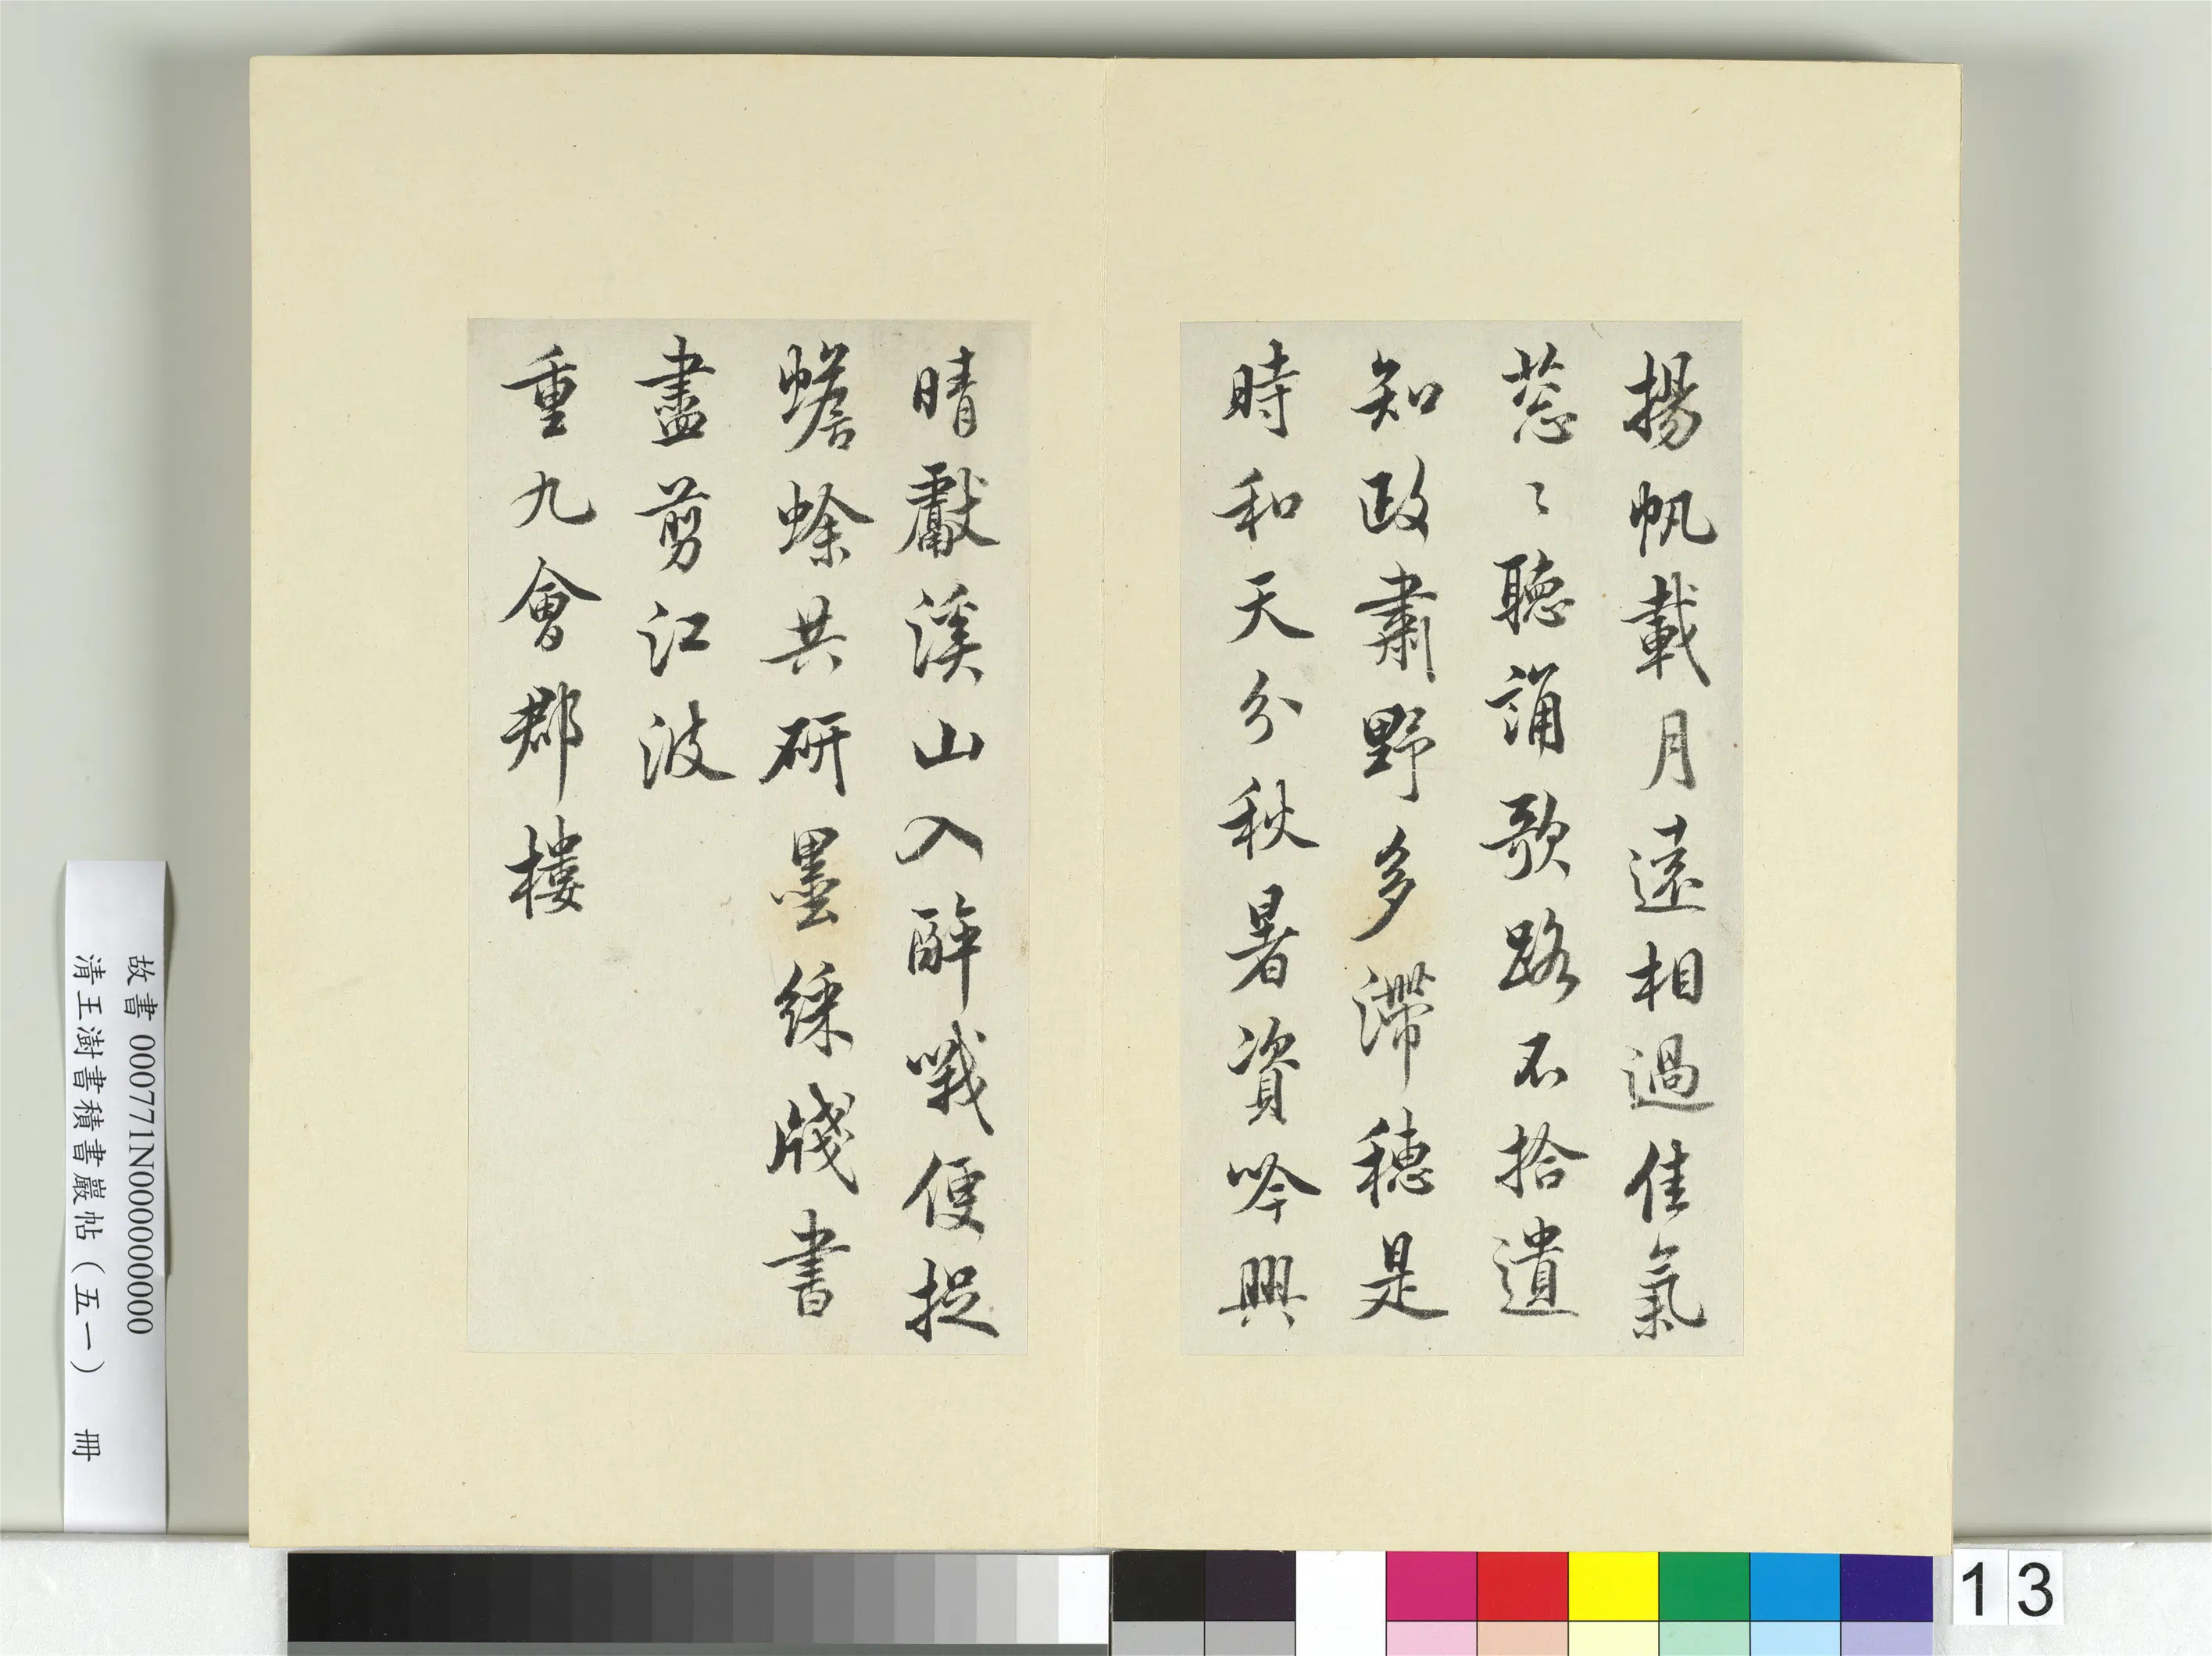 揚帆載月遠相過佳氣
蔥〻聽誦歌路不拾遺
知政肅野多滯穗是
時和天分秋暑資吟興
晴獻溪山入醉哦便捉
蟾蜍共研墨綵牋書
盡剪江波
重九會郡樓
故書 000771N000000000
清王澍書積書巖帖（五一） 冊
13